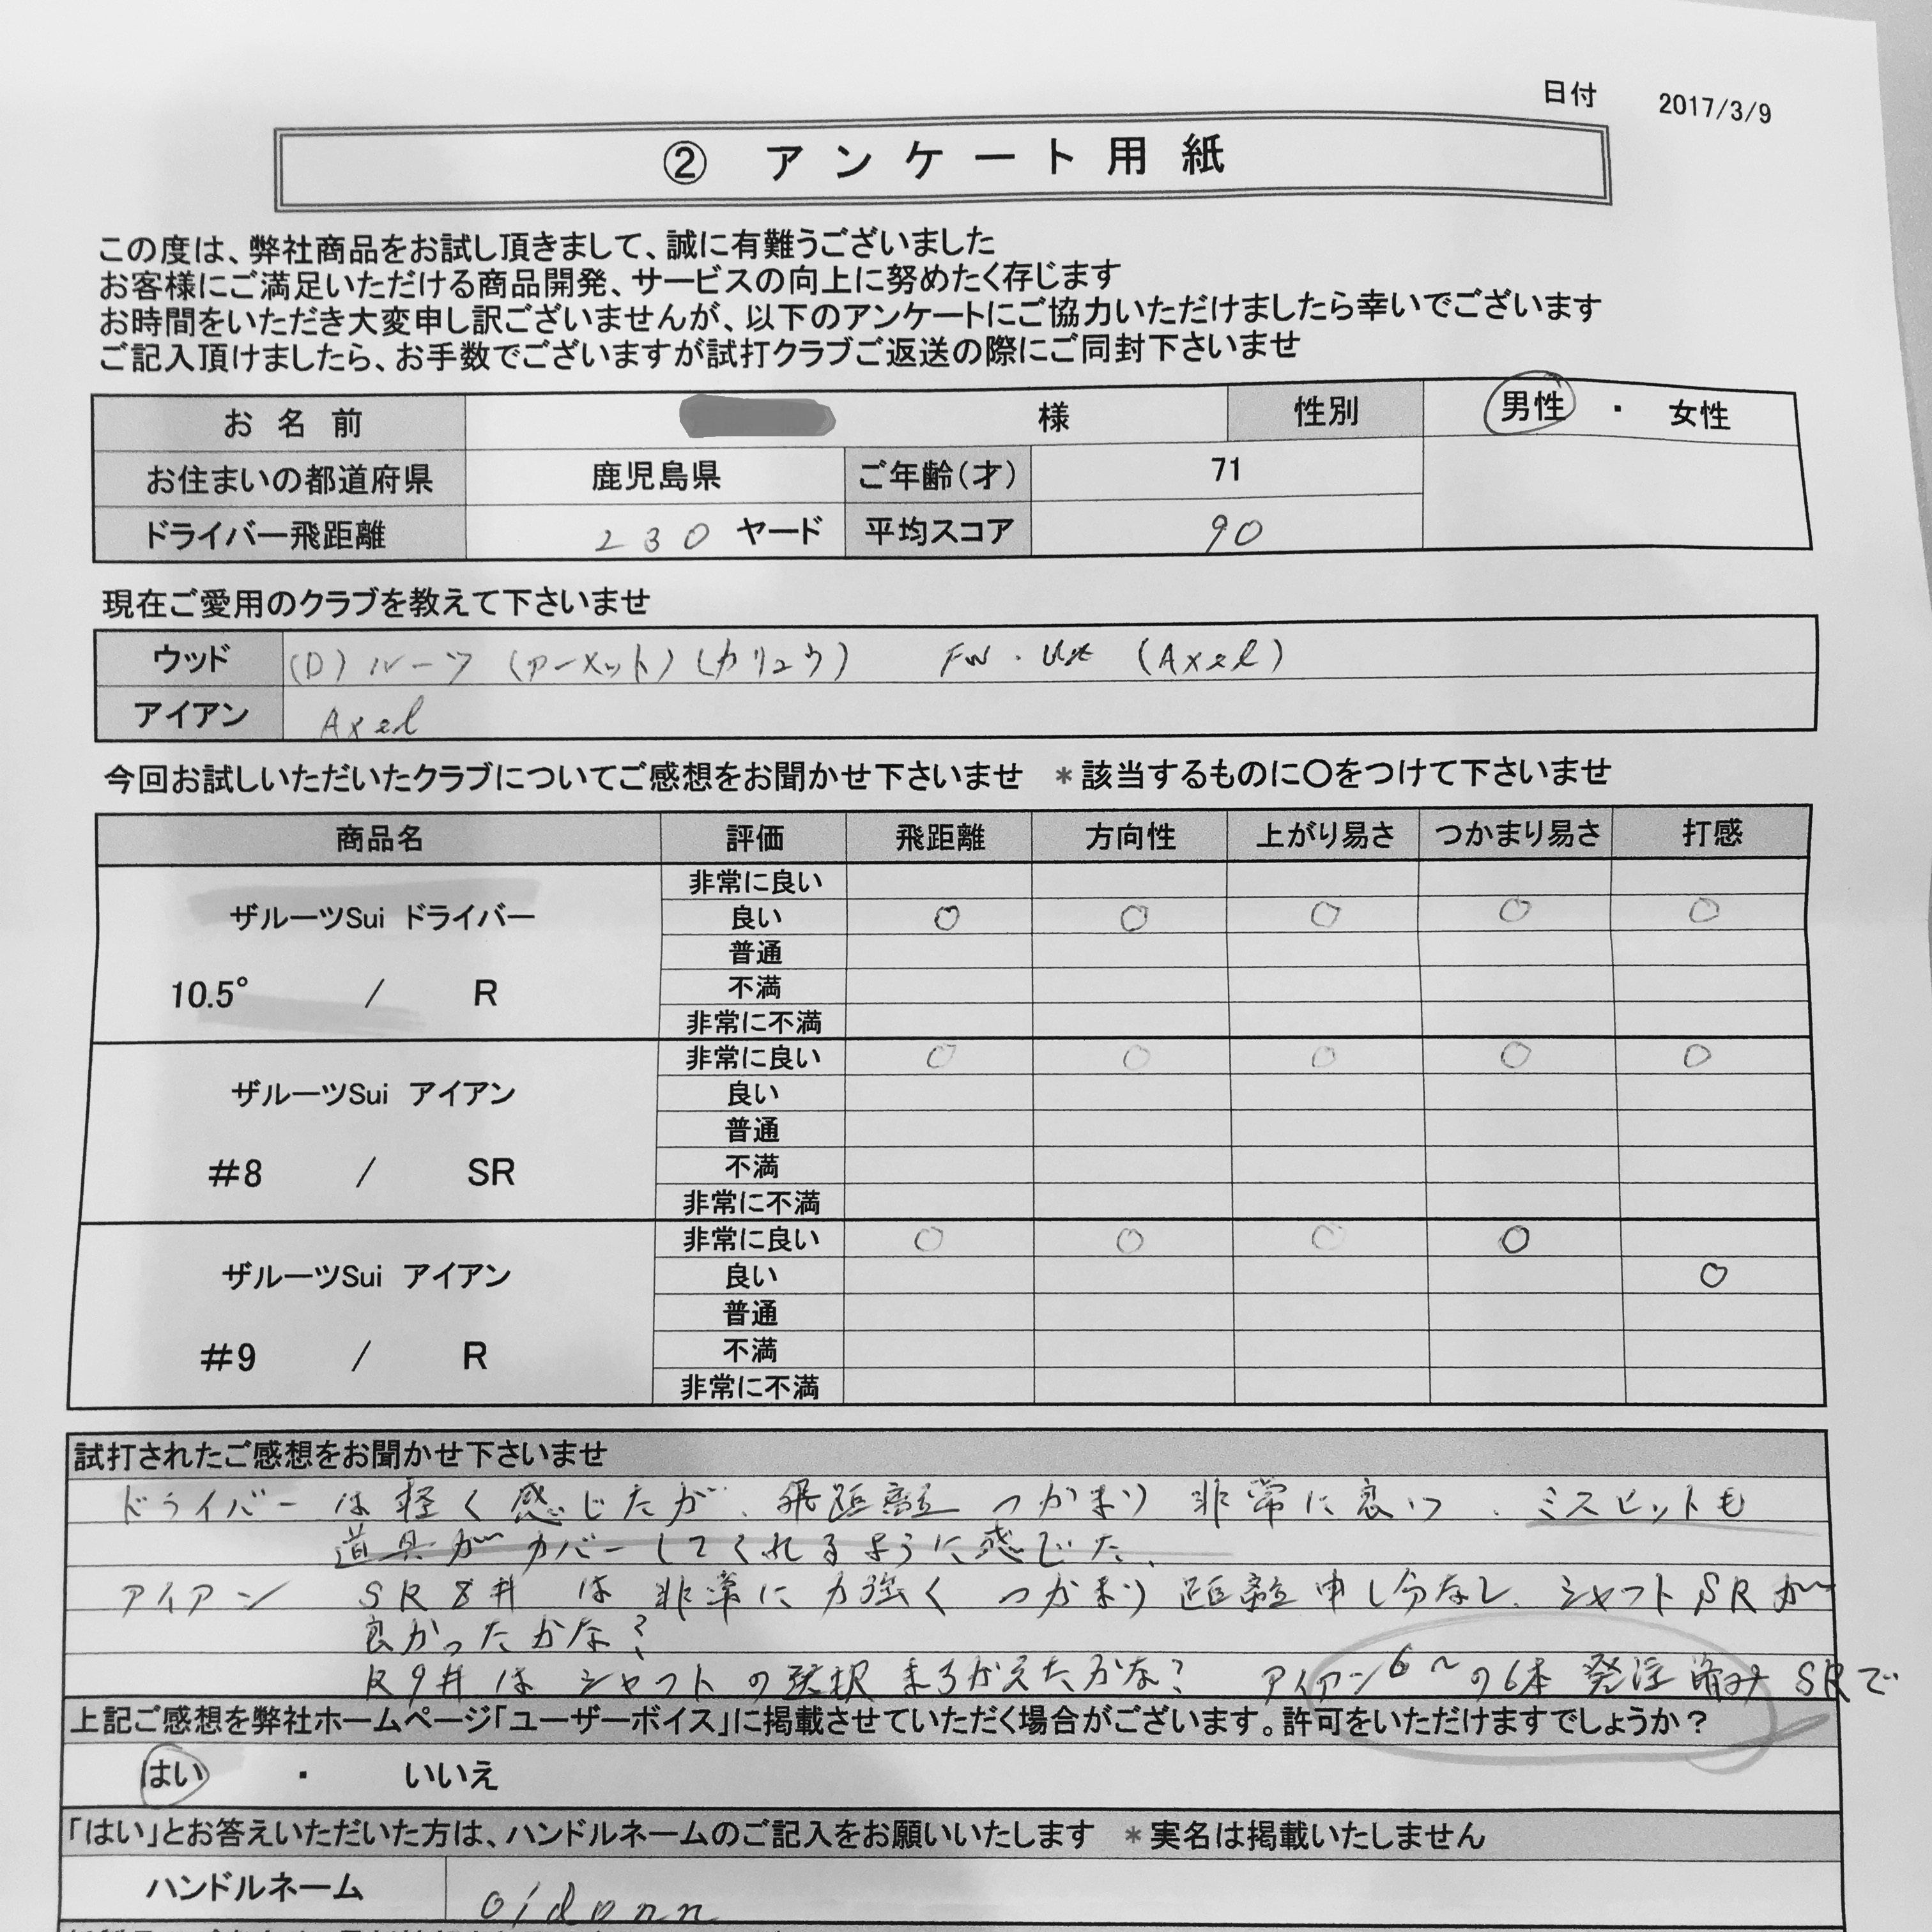 日付 2017/3/9
② アンケート用紙
この度は、弊社商品をお試し頂きまして、誠に有難うございました
お客様にご満足いただける商品開発、サービスの向上に努めたく存じます
お時間をいただき大変申し訳ございませんが、以下のアンケートにご協力いただけましたら幸いでございます
ご記入頂けましたら、お手数でございますが試打クラブご返送の際にご同封下さいませ
お名前 様 性別 男性 ・ 女性
お住まいの都道府県 鹿児島県 ご年齢(才) 71
ドライバー飛距離 230 ヤード 平均スコア 90
現在ご愛用のクラブを教えて下さいませ
ウッド (D) ルーツ (アーメット) (カリュウ) FW・Ut (Axel)
アイアン Axel
今回お試しいただいたクラブについてご感想をお聞かせ下さいませ *該当するものに〇をつけて下さいませ
商品名 評価 飛距離 方向性 上がり易さ つかまり易さ 打感
非常に良い
ザルーツSui ドライバー 良い 〇 〇 〇 〇 〇
普通
10.5° / R 不満
非常に不満
非常に良い 〇 〇 〇 〇 〇
ザルーツSui アイアン 良い
普通
#8 / SR 不満
非常に不満
非常に良い 〇 〇 〇 〇
ザルーツSui アイアン 良い 〇
普通
#9 / R 不満
非常に不満
試打されたご感想をお聞かせ下さいませ
ドライバーは軽く感じたが、飛距離 つかまり 非常に良い、ミスヒットも
道具がカバーしてくれるように感じた、
アイアン SR 8# は非常に力強く つかまり 距離申し分なし、シャフトSRが
良かったかな?
R 9# は シャフトの選択 まちがえたかな? アイアン6〜の6本 発注済み SRで
上記ご感想を弊社ホームページ「ユーザーボイス」に掲載させていただく場合がございます。許可をいただけますでしょうか?
はい ・ いいえ
「はい」とお答えいただいた方は、ハンドルネームのご記入をお願いいたします *実名は掲載いたしません
ハンドルネーム oidonn